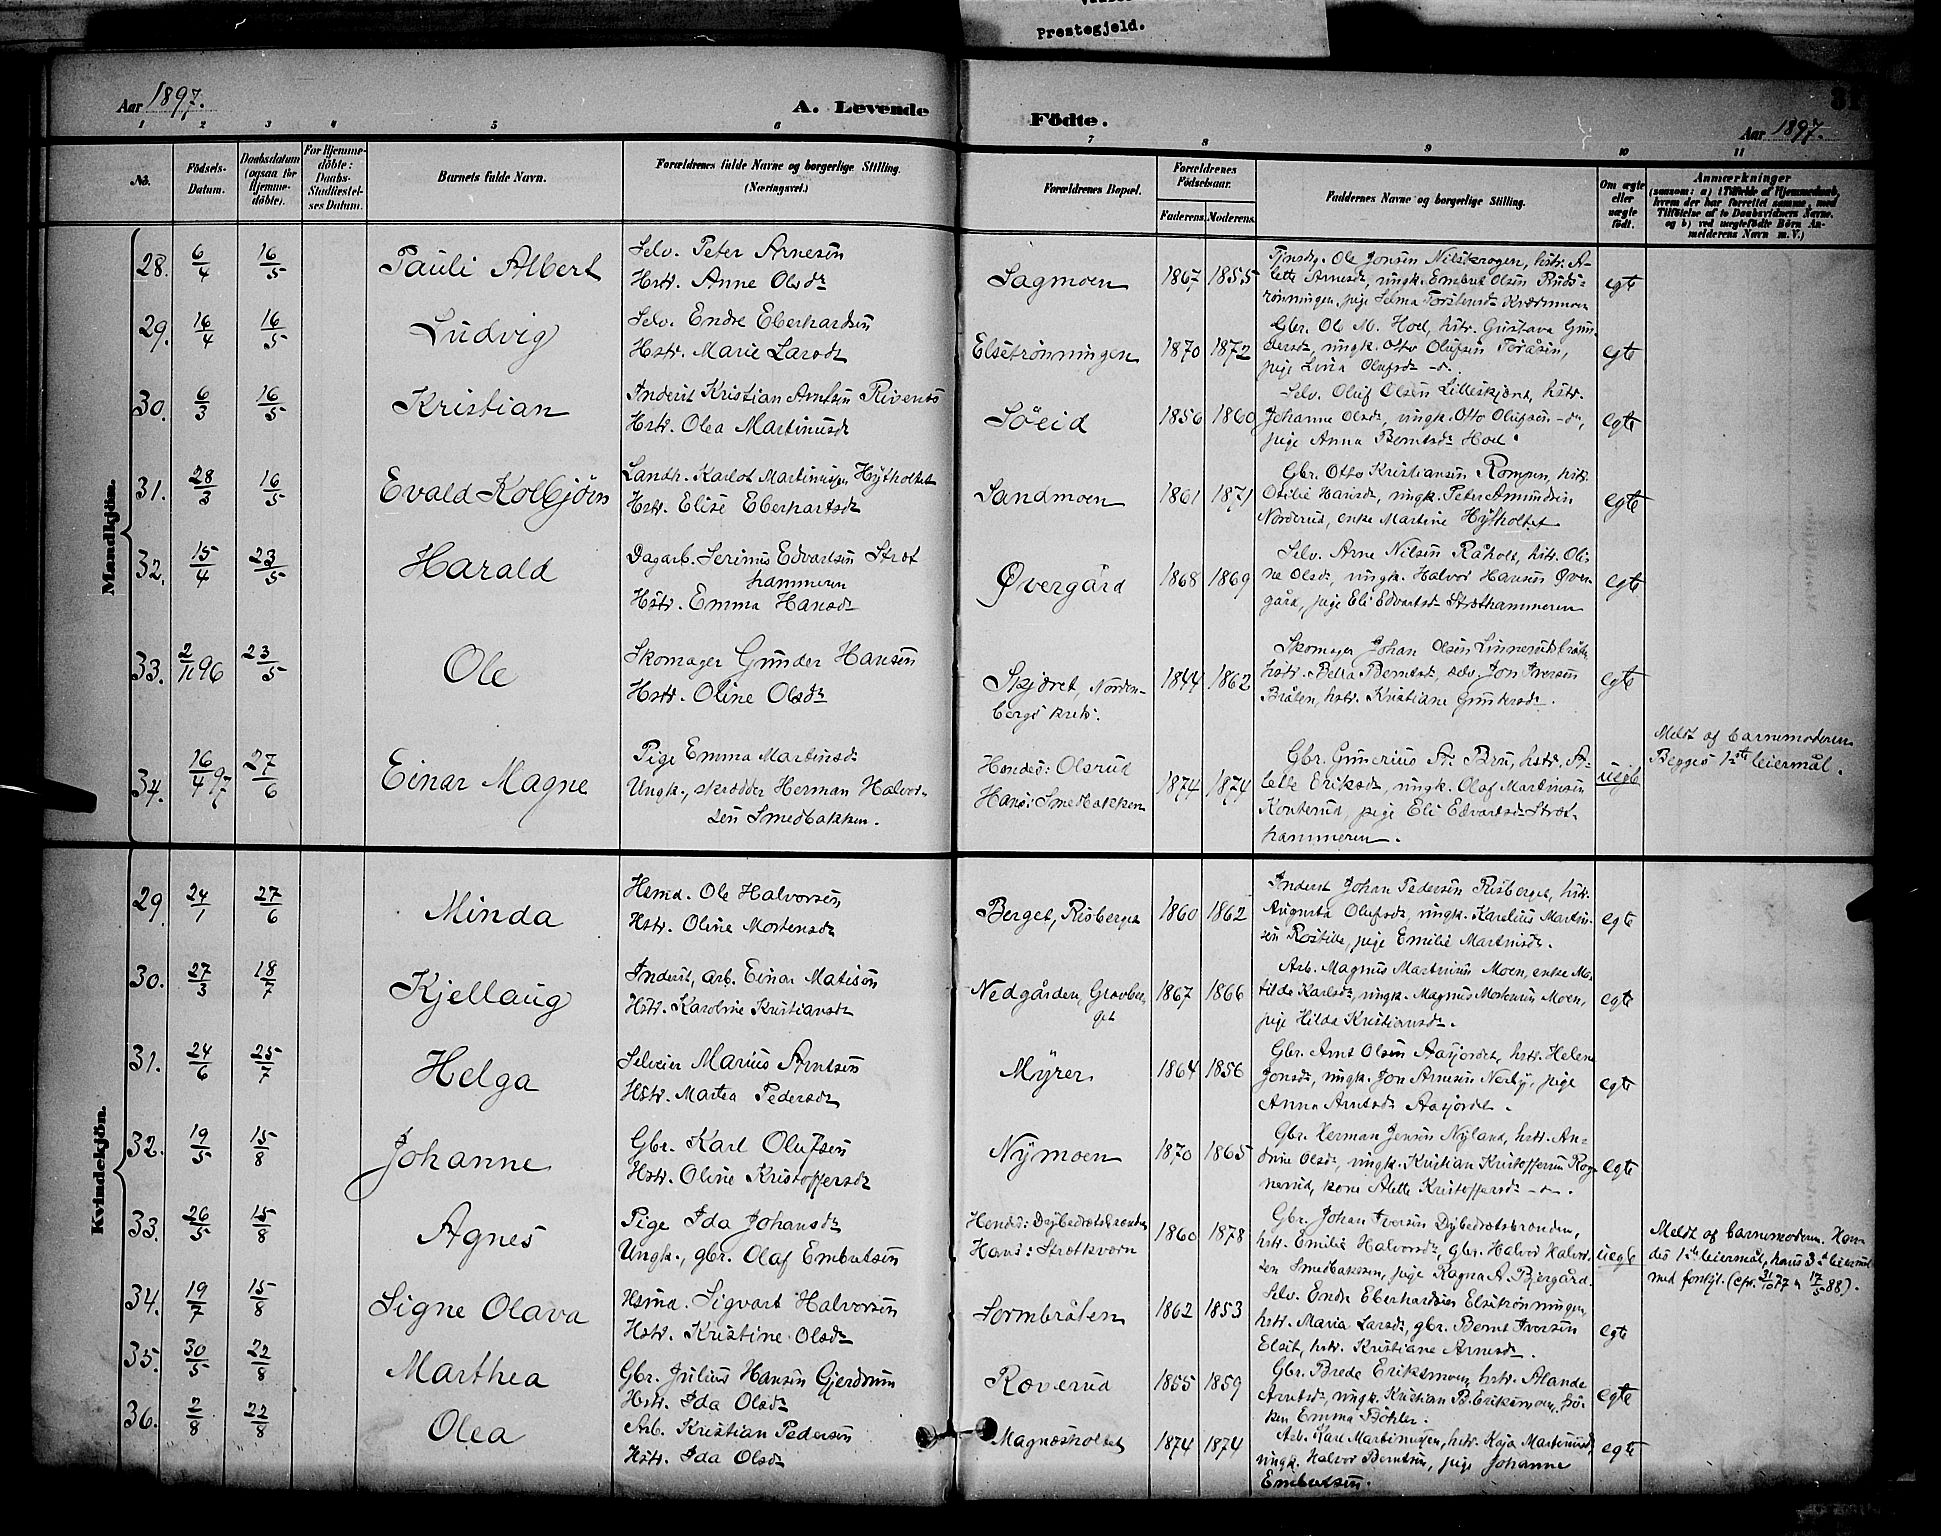 Prestegjeld.
Aar 1897.
A. Levende
Födte.
Aar 1897.
1 2 3 4 5 6 7 8 9 10 11
No.
Födsels-
Datum.
Daabsdatum
(ogsaa for
Hjemme-
döbte).
For Hjemme-
döbte:
Daabs-
Stadfæstel-
ses Datum.
Barnets fulde Navn.
Forældrenes fulde Navne og borgerlige Stilling.
(Næringsvei.)
Forældrenes Bopæl.
Forældrenes
Födselsaar.
Faderens. Moderens.
Faddernes Navne og borgerlige Stilling.
Om ægte
eller
uægte
födt.
Anmærkninger
(saasom: a) i Tilfælde af Hjemmedaab,
hvem der har forrettet samme, med
Tilföielse af to Daabsvidners Navne.
og b) ved uægtefödte Börn An-
melderens Navn m.V.)
Mandkjön.
28. 6/4 16/5 Pauli Albert
Selv. Peter Arnesen
Hstr. Anne Olsdr
Sagmoen 1867 1855
Ole Jonsen Nilskrogen, hstr. A-
lette Arnesdr, ungk. Embret Olsen Ruds-
rönningen, pige Selma Torstensdr
egte
29. 16/4 16/5 Ludvig
Selv. Endre Eberhardsen
Hstr. Marie Larsdr
Elsetrönningen 1870 1872
Gbr. Ole M. Hoel, hstr. Gustava Gun-
dersdr, ungk. Otto Olufsen Toråsen,
pige Lina Olufsdr -d.
egte
30. 6/3 16/5 Kristian
Inderst Kristian Arntsen Risenes
Hstr. Olea Martinusdr
Söeid 1856 1860
Selv. Oluf Olsen Lilleskjæret, hstr.
Johanne Olsdr, ungk. Otto Olufsen -d,
pige Anna Berntsdr Hoel.
egte
31. 28/3 16/5 Evald Kolbjörn
Landh. Karlot Martinusen Hytholtet
Hstr. Elise Eberhartsdr
Sandmoen 1861 1871
Gbr. Otto Kristiansen Rompen, hstr.
Otilie Hansdr, ungk. Peter Amundsen
Norderud, enke Martine Hytholtet
egte
32. 15/4 23/5 Harald
Dagarb. Serinus Edvartsen Stræt
hammeren
Hstr. Emma Hansdr
Övergård 1868 1869
Selv. Arne Nilsen Råholt, hstr. Oli-
ne Olsdr, ungk. Halvor Hansen Över-
gård, pige Eli Edvartsdr Stræthammeren
egte
33. 2/11 96 23/5 Ole
Skomager Gunder Hansen
Hstr. Oline Olsdr
Skjæret, Norden-
bergs kreds.
1844 1862
Skomager Johan Olsen Linnerudsbråten
hstr. Berntsdr, selv. Jon Iversen
Bråten, hstr. Kristiane Gundersdr.
egte
34. 16/4 97 27/6 Einar Magne
Pige Emma Martinsdr
Ungk., skrædder Herman Halvor-
sen Smedbakken.
Hendes: Olsrud
Hans: Smedbakken
1874 1874
Gbr. Gunerius Bru, hstr. A-
lette Eriksdr, ungk. Olaf Martinsen
Konterud, pige Eli Edvartsdr Stræt-
hammeren.
uegte
Meldt af barnemoderen.
Begges 1ste leiermål.
Kvindekjön.
29. 24/1 27/6 Minda
Hsmd. Ole Halvorsen
Hstr. Oline Mortensdr
Berget, Risberget 1860 1862
Inderst Johan Pedersen Risberget, hstr.
Augusta Olufsdr, ungk. Karelius Martin-
sen, pige Emilie Martinsdr.
egte
30. 27/3 18/7 Kjellaug
Inderst, arb. Einar Matisen
Hstr. Karoline Kristiansdr
Nedgården, Gravber-
get
1867 1866
Arb. Magnus Martinsen Moen, enke Ma-
tilde Karlsdr, ungk. Magnus Mortensen Moen,
pige Hilda Kristiansdr.
egte
31. 24/6 25/7 Helga
Selveier Marius Arntsen
Hstr. Martea Pedersdr
Myrer 1864 1856
Gbr. Arnt Olsen Aasjordet, hstr. Helene
Jonsdr, ungk. Jon Arnesen Nerby, pige
Anna Arntsdr Aasjordet.
egte
32. 19/5 15/8 Johanne
Gbr. Karl Olufsen
Hstr. Oline Kristoffersdr
Nymoen 1870 1865
Gbr. Herman Jensen Nyland, hstr. An-
drine Olsdr, ungk. Kristian Kristoffersen Rog-
nerud, kone Alette Kristoffersdr -d.
egte
33. 26/5 15/8 Agnes
Pige Ida Johansdr
Ungk., gbr. Olaf Embretsen
Hendes: Dybedrætsbronden
Hans: Strætkvern
1860 1878
Gbr. Johan Iversen Dybedrætsbronden,
hstr. Emilie Halvorsdr, gbr. Halvor Halvor-
sen Smedbakken, pige Ragna A. Bjergård.
uegte
Meldt af barnemoderen. Hen-
des 1ste leiermål, hans 3die leiermål
med forskj. (cfr. 31/10 77 & 17/5 88).
34. 19/7 15/8 Signe Olava
Hsmd. Sigvart Halvorsen
Hstr. Kristine Olsdr
Sormbråten 1862 1853
Selv. Endre Eberhardsen Elsetrönningen,
hstr. Maria Larsdr, gbr. Bernt Iversen
Elset, hstr. Kristiane Arnesdr.
egte
35. 30/5 22/8 Marthea
Gbr. Julius Hansen Gjerdrum
Hstr. Ida Olsdr
Roverud 1855 1859
Gbr. Brede Eriksmoen, hstr. Alande
Arntsdr, ungk. Kristian B. Eriksmoen, frö-
ken Emma Böhler.
egte
36. 2/8 22/8 Olea
Arb. Kristian Pedersen
Hstr. Ida Olsdr
Magnæsholtet 1874 1874
Arb. Karl Martinusen, hstr. Kaja Martinusdr
ungk. Halvor Berntsen, pige Johanne
Embretsen.
egte